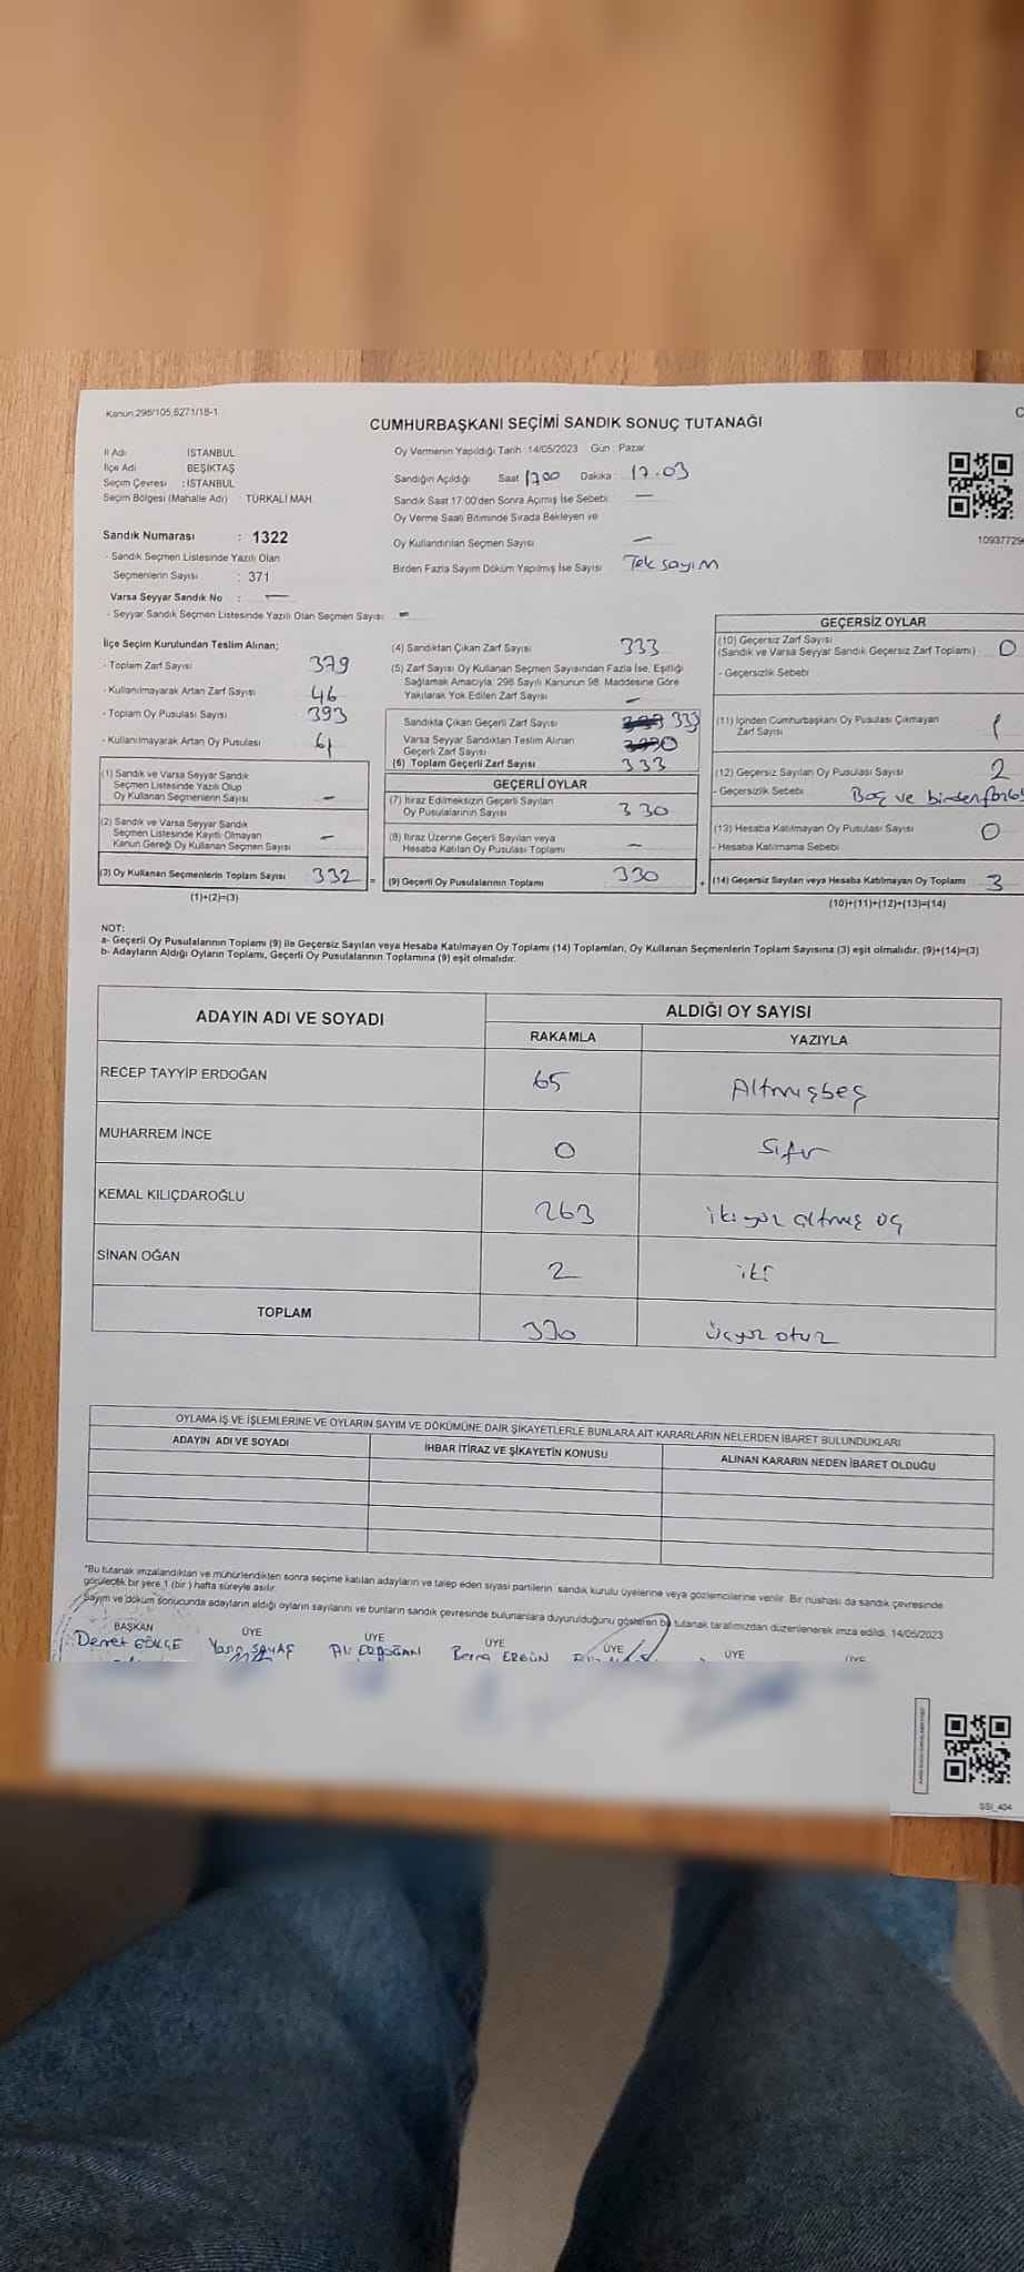 Kanun 298/105,6271/18-1
C
CUMHURBAŞKANI SEÇİMİ SANDIK SONUÇ TUTANAĞI
İl Adı İSTANBUL
İlçe Adı BEŞİKTAŞ
Seçim Çevresi : İSTANBUL
Seçim Bölgesi (Mahalle Adı) TÜRKALİ MAH.
Oy Vermenin Yapıldığı Tarih : 14/05/2023 Gün : Pazar
Sandığın Açıldığı Saat 1700 Dakika : 17.03
Sandık Saat 17.00'den Sonra Açılmış İse Sebebi: —
Oy Verme Saati Bitiminde Sırada Bekleyen ve
Oy Kullandırılan Seçmen Sayısı —
Birden Fazla Sayım Döküm Yapılmış İse Sayısı Tek sayım
Sandık Numarası : 1322
- Sandık Seçmen Listesinde Yazılı Olan
Seçmenlerin Sayısı : 371
Varsa Seyyar Sandık No : —
- Seyyar Sandık Seçmen Listesinde Yazılı Olan Seçmen Sayısı: —
10937729
İlçe Seçim Kurulundan Teslim Alınan;
- Toplam Zarf Sayısı 379
- Kullanılmayarak Artan Zarf Sayısı 46
- Toplam Oy Pusulası Sayısı 393
- Kullanılmayarak Artan Oy Pusulası 61
(1) Sandık ve Varsa Seyyar Sandık
Seçmen Listesinde Yazılı Olup
Oy Kullanan Seçmenlerin Sayısı —
(2) Sandık ve Varsa Seyyar Sandık
Seçmen Listesinde Kayıtlı Olmayan
Kanun Gereği Oy Kullanan Seçmen Sayısı —
(3) Oy Kullanan Seçmenlerin Toplam Sayısı 332 =
(1)+(2)=(3)
(4) Sandıktan Çıkan Zarf Sayısı 333
(5) Zarf Sayısı Oy Kullanan Seçmen Sayısından Fazla İse, Eşitliği
Sağlamak Amacıyla; 298 Sayılı Kanunun 98. Maddesine Göre
Yakılarak Yok Edilen Zarf Sayısı —
Sandıkta Çıkan Geçerli Zarf Sayısı 333
Varsa Seyyar Sandıktan Teslim Alınan
Geçerli Zarf Sayısı 0
(6) Toplam Geçerli Zarf Sayısı 333
GEÇERLİ OYLAR
(7) İtiraz Edilmeksizin Geçerli Sayılan
Oy Pusulalarının Sayısı 330
(8) İtiraz Üzerine Geçerli Sayılan veya
Hesaba Katılan Oy Pusulası Toplamı —
(9) Geçerli Oy Pusulalarının Toplamı 330 +
GEÇERSİZ OYLAR
(10) Geçersiz Zarf Sayısı
(Sandık ve Varsa Seyyar Sandık Geçersiz Zarf Toplamı) 0
- Geçersizlik Sebebi
(11) İçinden Cumhurbaşkanı Oy Pusulası Çıkmayan
Zarf Sayısı 1
(12) Geçersiz Sayılan Oy Pusulası Sayısı 2
- Geçersizlik Sebebi Boş ve birden fazla
(13) Hesaba Katılmayan Oy Pusulası Sayısı 0
- Hesaba Katılmama Sebebi
(14) Geçersiz Sayılan veya Hesaba Katılmayan Oy Toplamı 3
(10)+(11)+(12)+(13)=(14)
NOT:
a- Geçerli Oy Pusulalarının Toplamı (9) ile Geçersiz Sayılan veya Hesaba Katılmayan Oy Toplamı (14) Toplamları, Oy Kullanan Seçmenlerin Toplam Sayısına (3) eşit olmalıdır. (9)+(14)=(3)
b- Adayların Aldığı Oyların Toplamı, Geçerli Oy Pusulalarının Toplamına (9) eşit olmalıdır.
ADAYIN ADI VE SOYADI ALDIĞI OY SAYISI
RAKAMLA YAZIYLA
RECEP TAYYİP ERDOĞAN 65 Altmışbeş
MUHARREM İNCE 0 Sıfır
KEMAL KILIÇDAROĞLU 263 ikiyüz altmış üç
SİNAN OĞAN 2 iki
TOPLAM 330 Üçyüz otuz
OYLAMA İŞ VE İŞLEMLERİNE VE OYLARIN SAYIM VE DÖKÜMÜNE DAİR ŞİKAYETLERLE BUNLARA AİT KARARLARIN NELERDEN İBARET BULUNDUKLARI
ADAYIN ADI VE SOYADI İHBAR İTİRAZ VE ŞİKAYETİN KONUSU ALINAN KARARIN NEDEN İBARET OLDUĞU
*Bu tutanak imzalandıktan ve mühürlendikten sonra seçime katılan adayların ve talep eden siyasi partilerin sandık kurulu üyelerine veya gözlemcilerine verilir. Bir nüshası da sandık çevresinde
görülecek bir yere 1 (bir ) hafta süreyle asılır.
Sayım ve döküm sonucunda adayların aldığı oyların sayılarını ve bunların sandık çevresinde bulunanlara duyurulduğunu gösteren bu tutanak tarafımızdan düzenlenerek imza edildi. 14/05/2023
BAŞKAN ÜYE ÜYE ÜYE ÜYE ÜYE ÜYE
Demet GÖKÇE Yasin SAVAŞ Ali ERDOĞAN Berra ERGÜN
SSI_404